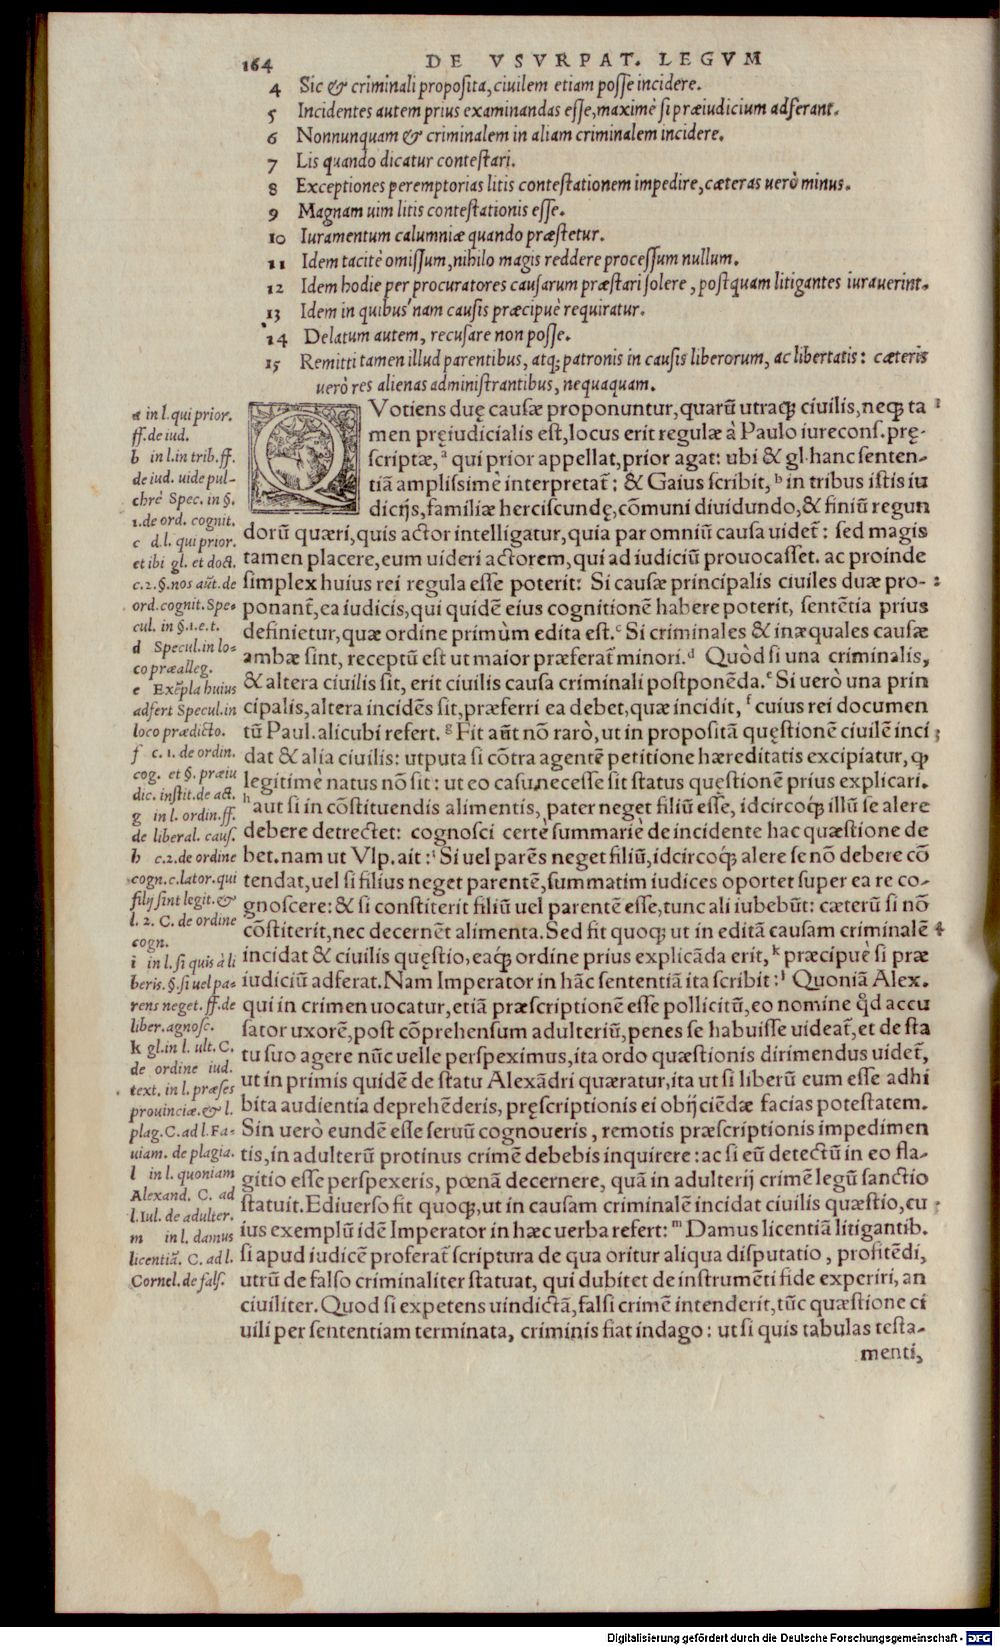 164 DE VSVRPAT. LEGVM
4 Sic & criminali proposita, ciuilem etiam posse incidere.
5 Incidentes autem prius examinandas esse, maximè si præiudicium adferant.
6 Nonnunquam & criminalem in aliam criminalem incidere.
7 Lis quando dicatur contestari.
8 Exceptiones peremptorias litis contestationem impedire, cæteras uerò minus.
9 Magnam uim litis contestationis esse.
10 Iuramentum calumniæ quando præstetur.
11 Idem tacitè omissum, nihilo magis reddere processum nullum.
12 Idem hodie per procuratores causarum præstari solere, postquam litigantes iurauerint.
13 Idem in quibus'nam causis præcipuè requiratur.
14 Delatum autem, recusare non posse.
15 Remitti tamen illud parentibus, atq; patronis in causis liberorum, ac libertatis: cæteris
uerò res alienas administrantibus, nequaquam.
QVotiens duę causæ proponuntur, quarũ utraq; ciuilis, neq; ta 1
men pręiudicialis est, locus erit regulæ à Paulo iurecons. prę-
scriptæ, a qui prior appellat, prior agat: ubi & gl. hanc senten-
tiã amplissimè interpretat̃: & Gaius scribit, b in tribus istis iu
dicijs, familiæ herciscundę, cõmuni diuidundo, & finiũ regun
dorũ quæri, quis actor intelligatur, quia par omniũ causa uidet̃: sed magis
tamen placere, eum uideri actorem, qui ad iudiciũ prouocasset. ac proinde
simplex huius rei regula esse poterit: Si causæ principalis ciuiles duæ pro- 2
ponant̃, ea iudicis, qui quidẽ eius cognitionẽ habere poterit, sentẽtia prius
definietur, quæ ordine primùm edita est. c Si criminales & inæquales causæ
ambæ sint, receptũ est ut maior præferat̃ minori. d Quòd si una criminalis,
& altera ciuilis sit, erit ciuilis causa criminali postponẽda. e Si uerò una prin
cipalis, altera incidẽs sit, præferri ea debet, quæ incidit, f cuius rei documen
tũ Paul. alicubi refert. g Fit aũt nõ rarò, ut in propositã quęstionẽ ciuilẽ inci 3
dat & alia ciuilis: utputa si cõtra agentẽ petitione hæreditatis excipiatur, q
legitimè natus nõ sit: ut eo casu necesse sit status quęstionẽ prius explicari.
h aut si in cõstituendis alimentis, pater neget filiũ esse, idcircoq; illũ se alere
debere detrectet: cognosci certè summariè de incidente hac quæstione de
bet. nam ut Vlp. ait: i Si uel parẽs neget filiũ, idcircoq; alere se nõ debere cõ
tendat, uel si filius neget parentẽ, summatim iudices oportet super ea re co-
gnoscere: & si constiterit filiũ uel parentẽ esse, tunc ali iubebũt: cæterũ si nõ
cõstiterit, nec decernẽt alimenta. Sed fit quoq; ut in editã causam criminalẽ 4
incidat & ciuilis quęstio, eaq; ordine prius explicãda erit, k præcipuè si præ
iudiciũ adferat. Nam Imperator in hãc sententiã ita scribit: l Quoniã Alex.
qui in crimen uocatur, etiã præscriptionẽ esse pollicitũ, eo nomine q̃d accu
sator uxorẽ, post cõprehensum adulteriũ, penes se habuisse uideat̃, et de sta
tu suo agere nũc uelle perspeximus, ita ordo quæstionis dirimendus uidet̃,
ut in primis quidẽ de statu Alexãdri quæratur, ita ut si liberũ eum esse adhi
bita audientia deprehẽderis, pręscriptionis ei obijciẽdæ facias potestatem.
Sin uerò eundẽ esse seruũ cognoueris, remotis præscriptionis impedimen
tis, in adulterũ protinus crimẽ debebis inquirere: ac si eũ detectũ in eo fla-
gitio esse perspexeris, pœnã decernere, quã in adulterij crimẽ legũ sanctio
statuit. Ediuerso fit quoq;, ut in causam criminalẽ incidat ciuilis quæstio, cu
ius exemplũ idẽ Imperator in hæc uerba refert: m Damus licentiã litigantib.
si apud iudicẽ proferat̃ scriptura de qua oritur aliqua disputatio, profitẽdi,
utrũ de falso criminaliter statuat, qui dubitet de instrumẽti fide experiri, an
ciuiliter. Quod si expetens uindictã, falsi crimẽ intenderit, tũc quæstione ci
uili per sententiam terminata, criminis fiat indago: ut si quis tabulas testa-
menti,
a in l. qui prior.
ff. de iud.
b in l. in trib. ff.
de iud. uide pul-
chrè Spec. in §.
1. de ord. cognit.
c d. l. qui prior.
et ibi gl. et doct.
c. 2. §. nos aũt. de
ord. cognit. Spe-
cul. in §. 1. e. t.
d Specul. in lo-
co præalleg.
e Exẽpla huius
adfert Specul. in
loco prædicto.
f c. 1. de ordin.
cog. et §. præiu
dic. instit. de act.
g in l. ordin. ff.
de liberal. caus.
h c. 2. de ordine
cogn. c. lator. qui
filij sint legit. &
l. 2. C. de ordine
cogn.
i in l. si quis à li
beris. §. si uel pa-
rens neget. ff. de
liber. agnosc.
k gl. in l. ult. C.
de ordine iud.
text. in l. præses
prouinciæ. & l.
plag. C. ad l. Fa-
uiam. de plagia.
l in l. quoniam
Alexand. C. ad
l. Iul. de adulter.
m in l. damus
licentiã. C. ad l.
Cornel. de fals.
Digitalisierung gefördert durch die Deutsche Forschungsgemeinschaft - DFG